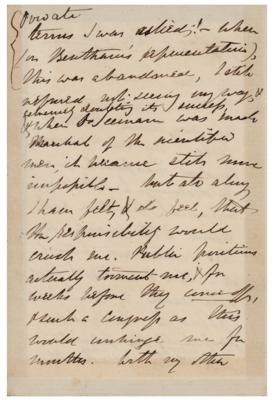 private
terms I was asked; — when
(on Bentham's representation),
this was abandoned, I still
refused not seeing my way &
gravely doubting its success,
& when Dr Seemann was made
Marshal of the scientific
men it became still more
impossible — but all along
I have felt, & do feel, that
the responsibility would
crush me. Public positions
actually torment me, & for
weeks before they come off,
& such a congress as this
would unhinge me for
months. With my other